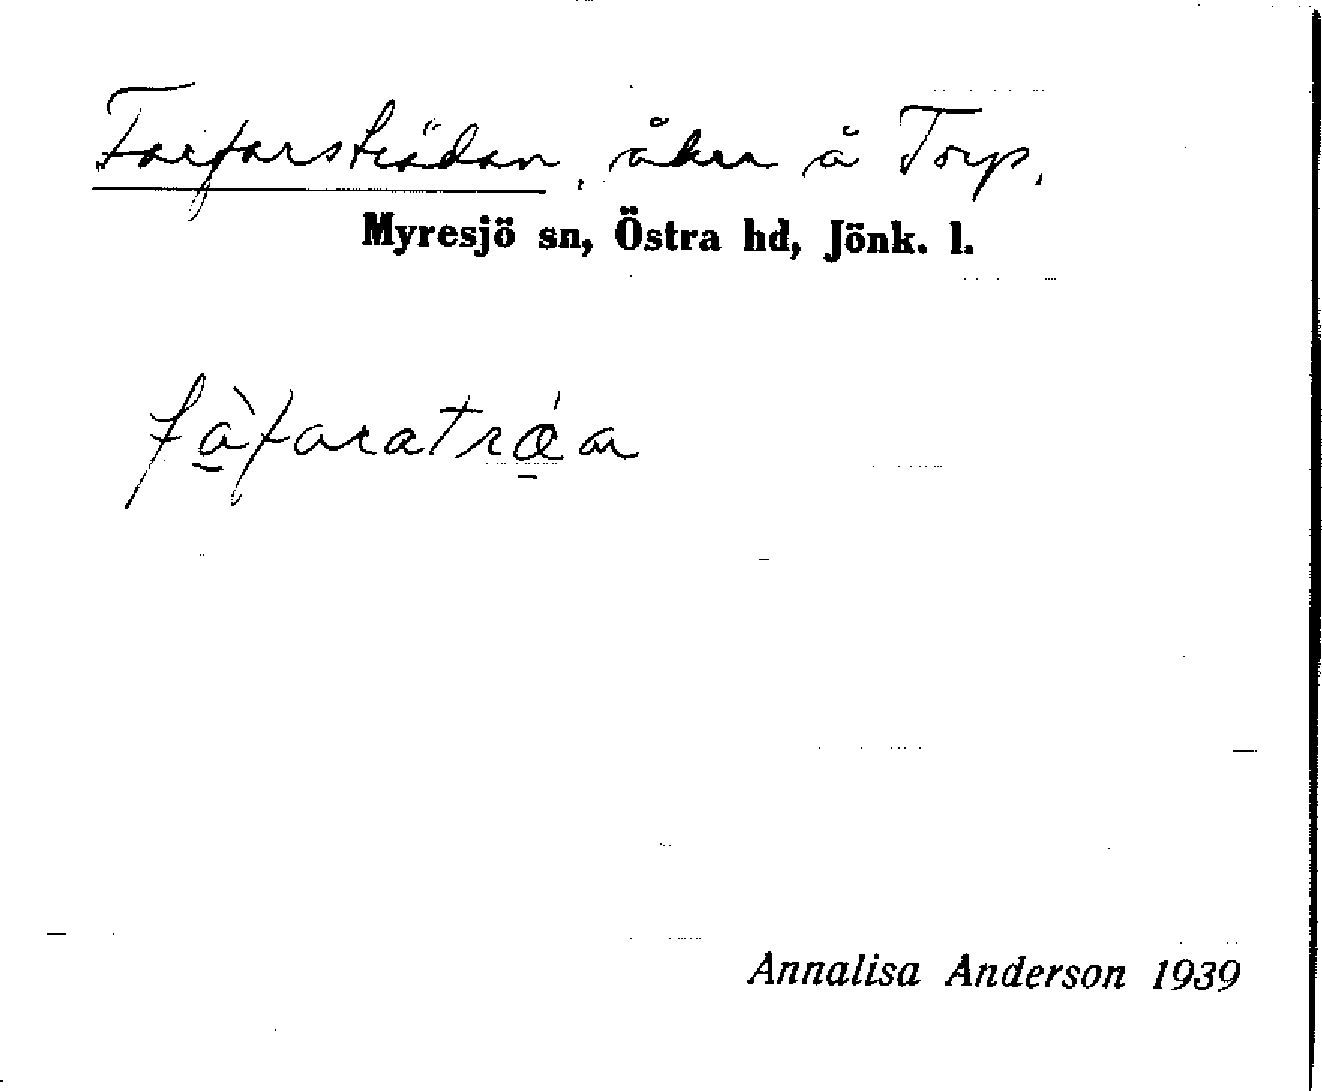 Farfarsträdan, åker å Torp.
Myresjö sn, Östra hd, Jönk. l.
fàfaratrǽan
Annalisa Anderson 1939